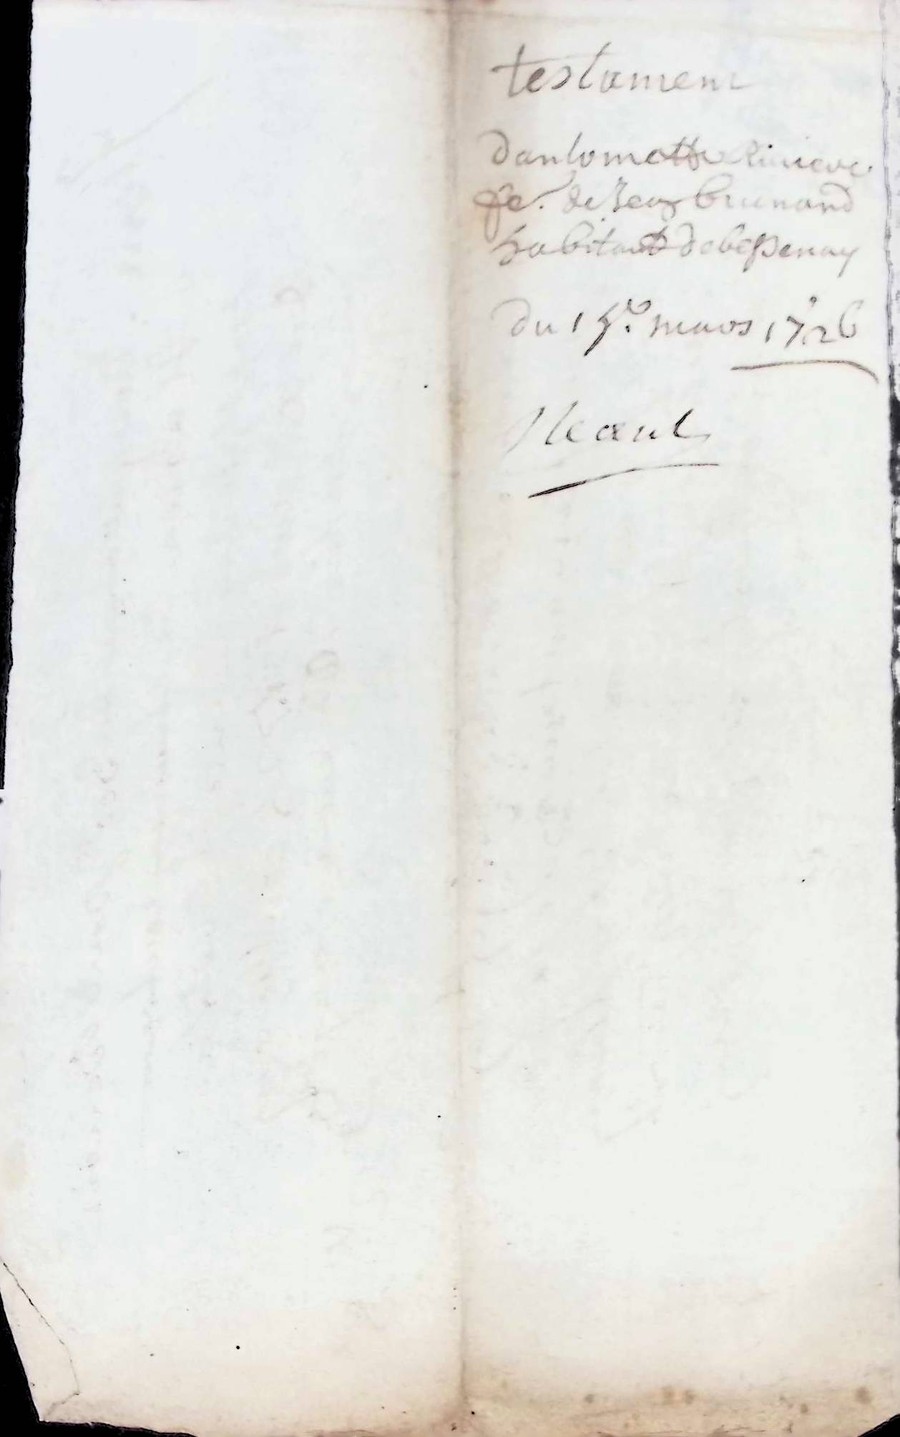 testament
dantomette Riviere
fe. de Jean brunand
habitant de bessenay
du 15e. mars 1726